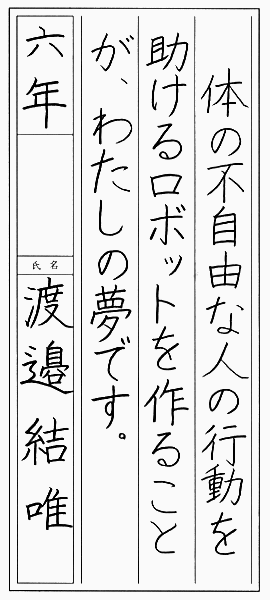 体の不自由な人の行動を
助けるロボットを作ること
が、わたしの夢です。
六年
氏名
渡邉結唯